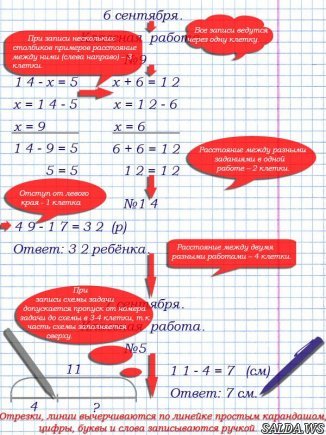 6 сентября.
Все записи ведутся
через одну клетку.
При записи нескольких
столбиков примеров расстояние
между ними (слева направо) – 3
клетки.
работа
№9
14-x=5 x+6=12
x=14-5 x=12-6
x=9 x=6
14-9=5 6+6=12
5=5 12=12
Расстояние между разными
заданиями в одной
работе – 2 клетки.
Отступ от левого
края – 1 клетка
№14
49-17=32 (р)
Ответ: 32 ребёнка.
Расстояние между двумя
разными работами – 4 клетки.
При
записи схемы задачи
допускается пропуск от номера
задачи до схемы в 3-4 клетки, т.к.
часть схемы заполняется
сверху.
сентября.
работа.
№5
11
4 ?
11-4=7 (см)
Ответ: 7 см.
Отрезки, линии вычерчиваются по линейке простым карандашом,
цифры, буквы и слова записываются ручкой.
SALDA.WS